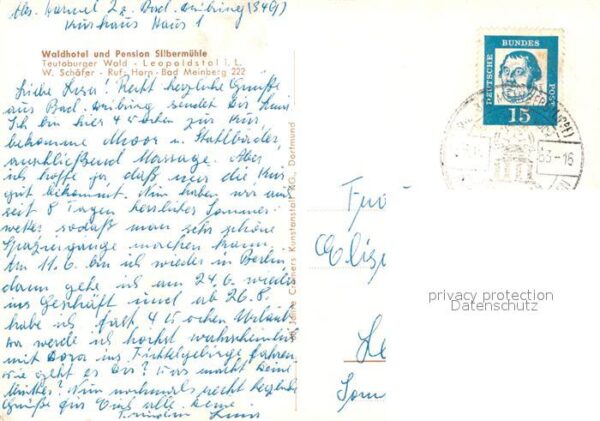 Abs. Harmel Zz. Bad Meinberg (3491)
Kurhaus Haus 1
Waldhotel und Pension Silbermühle
Teutoburger Wald - Leopoldstal i. L.
W. Schäfer - Ruf: Horn-Bad Meinberg 222
Liebe Luise! Recht herzliche Grüße
aus Bad Meinberg sendet Dir
Ich bin hier 4 Wochen zur Kur
bekomme Moor u. Stahlbäder,
anschließend Massage. Aber
ich hoffe ja daß mir die Kur
gut bekommt. Nun haben wir auch
seit 8 Tagen herrliches Sommer-
wetter sodaß man sehr schöne
Spaziergänge machen kann.
Am 11.6. bin ich wieder in Berlin
dann gehe ich am 24.6. wieder
ins Geschäft und ab 26.8.
habe ich fast 4 Wochen Urlaub
da werde ich höchst wahrscheinlich
mit Dora ins Fichtelgebirge fahren
wie geht es Dir? Was macht Deine
Mutter? Nun nochmals recht herzliche
Grüße für Euch alle Deine
Freundin
Cramers Kunstanstalt KG., Dortmund
DEUTSCHE BUNDES POST
15
63-16
privacy protection
Datenschutz